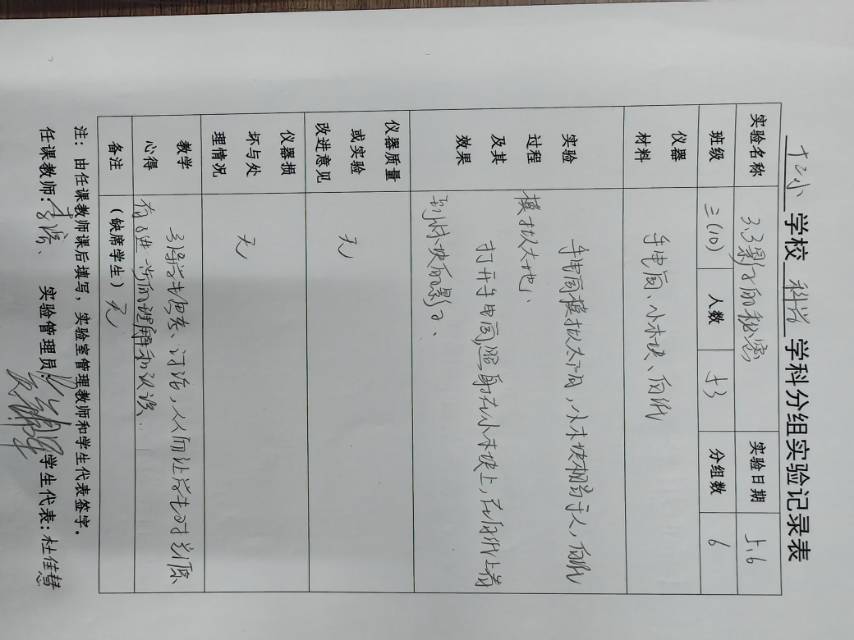 十二小 学校 科学 学科分组实验记录表
实验名称 3.3影子的秘密 实验日期 5.6
班级 三(10) 人数 53 分组数 6
仪器材料 手电筒、小木块、白纸
实验过程及其效果 手电筒模拟太阳,小木块相当于人,白纸
模拟大地、
打开手电筒照射在小木块上,在白纸上看
到木块的影子、
仪器质量或实验改进意见 无
仪器损坏与处理情况 无
教学心得 引导学生思考、讨论,从而让学生对影子
有了进一步的理解和认识
备注 (缺席学生) 无
注:由任课教师课后填写,实验室管理教师和学生代表签字。
任课教师: 实验管理员: 学生代表:杜佳慧